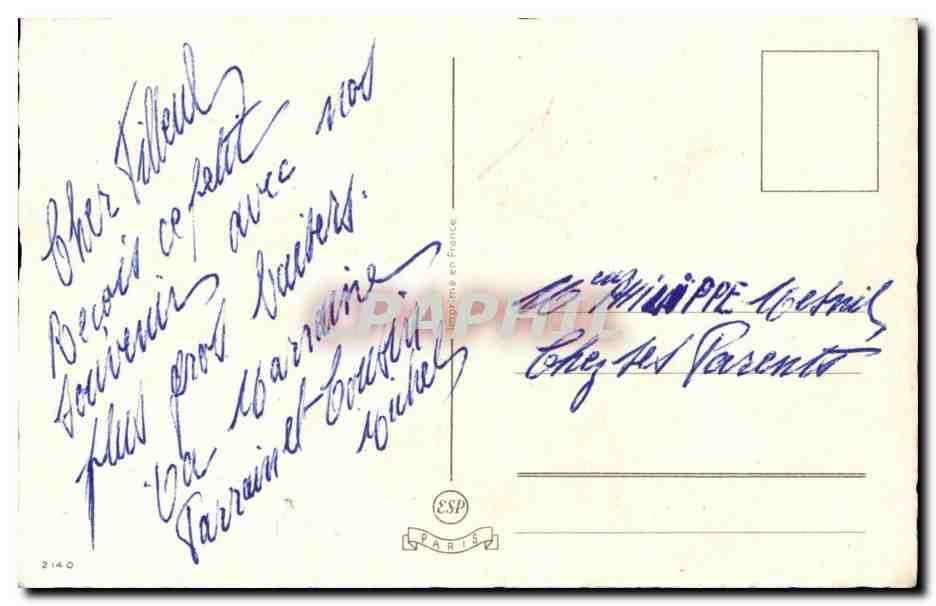 Cher Filleul
Recois ce petit
souvenir avec nos
plus gros baisers.
Ta Marraine
Parrain et Cousin
Michel
Imprimé en France
CPAPHIL
Mr PHILIPPE Mesnil
Chez ses Parents
ESP
PARIS
2140